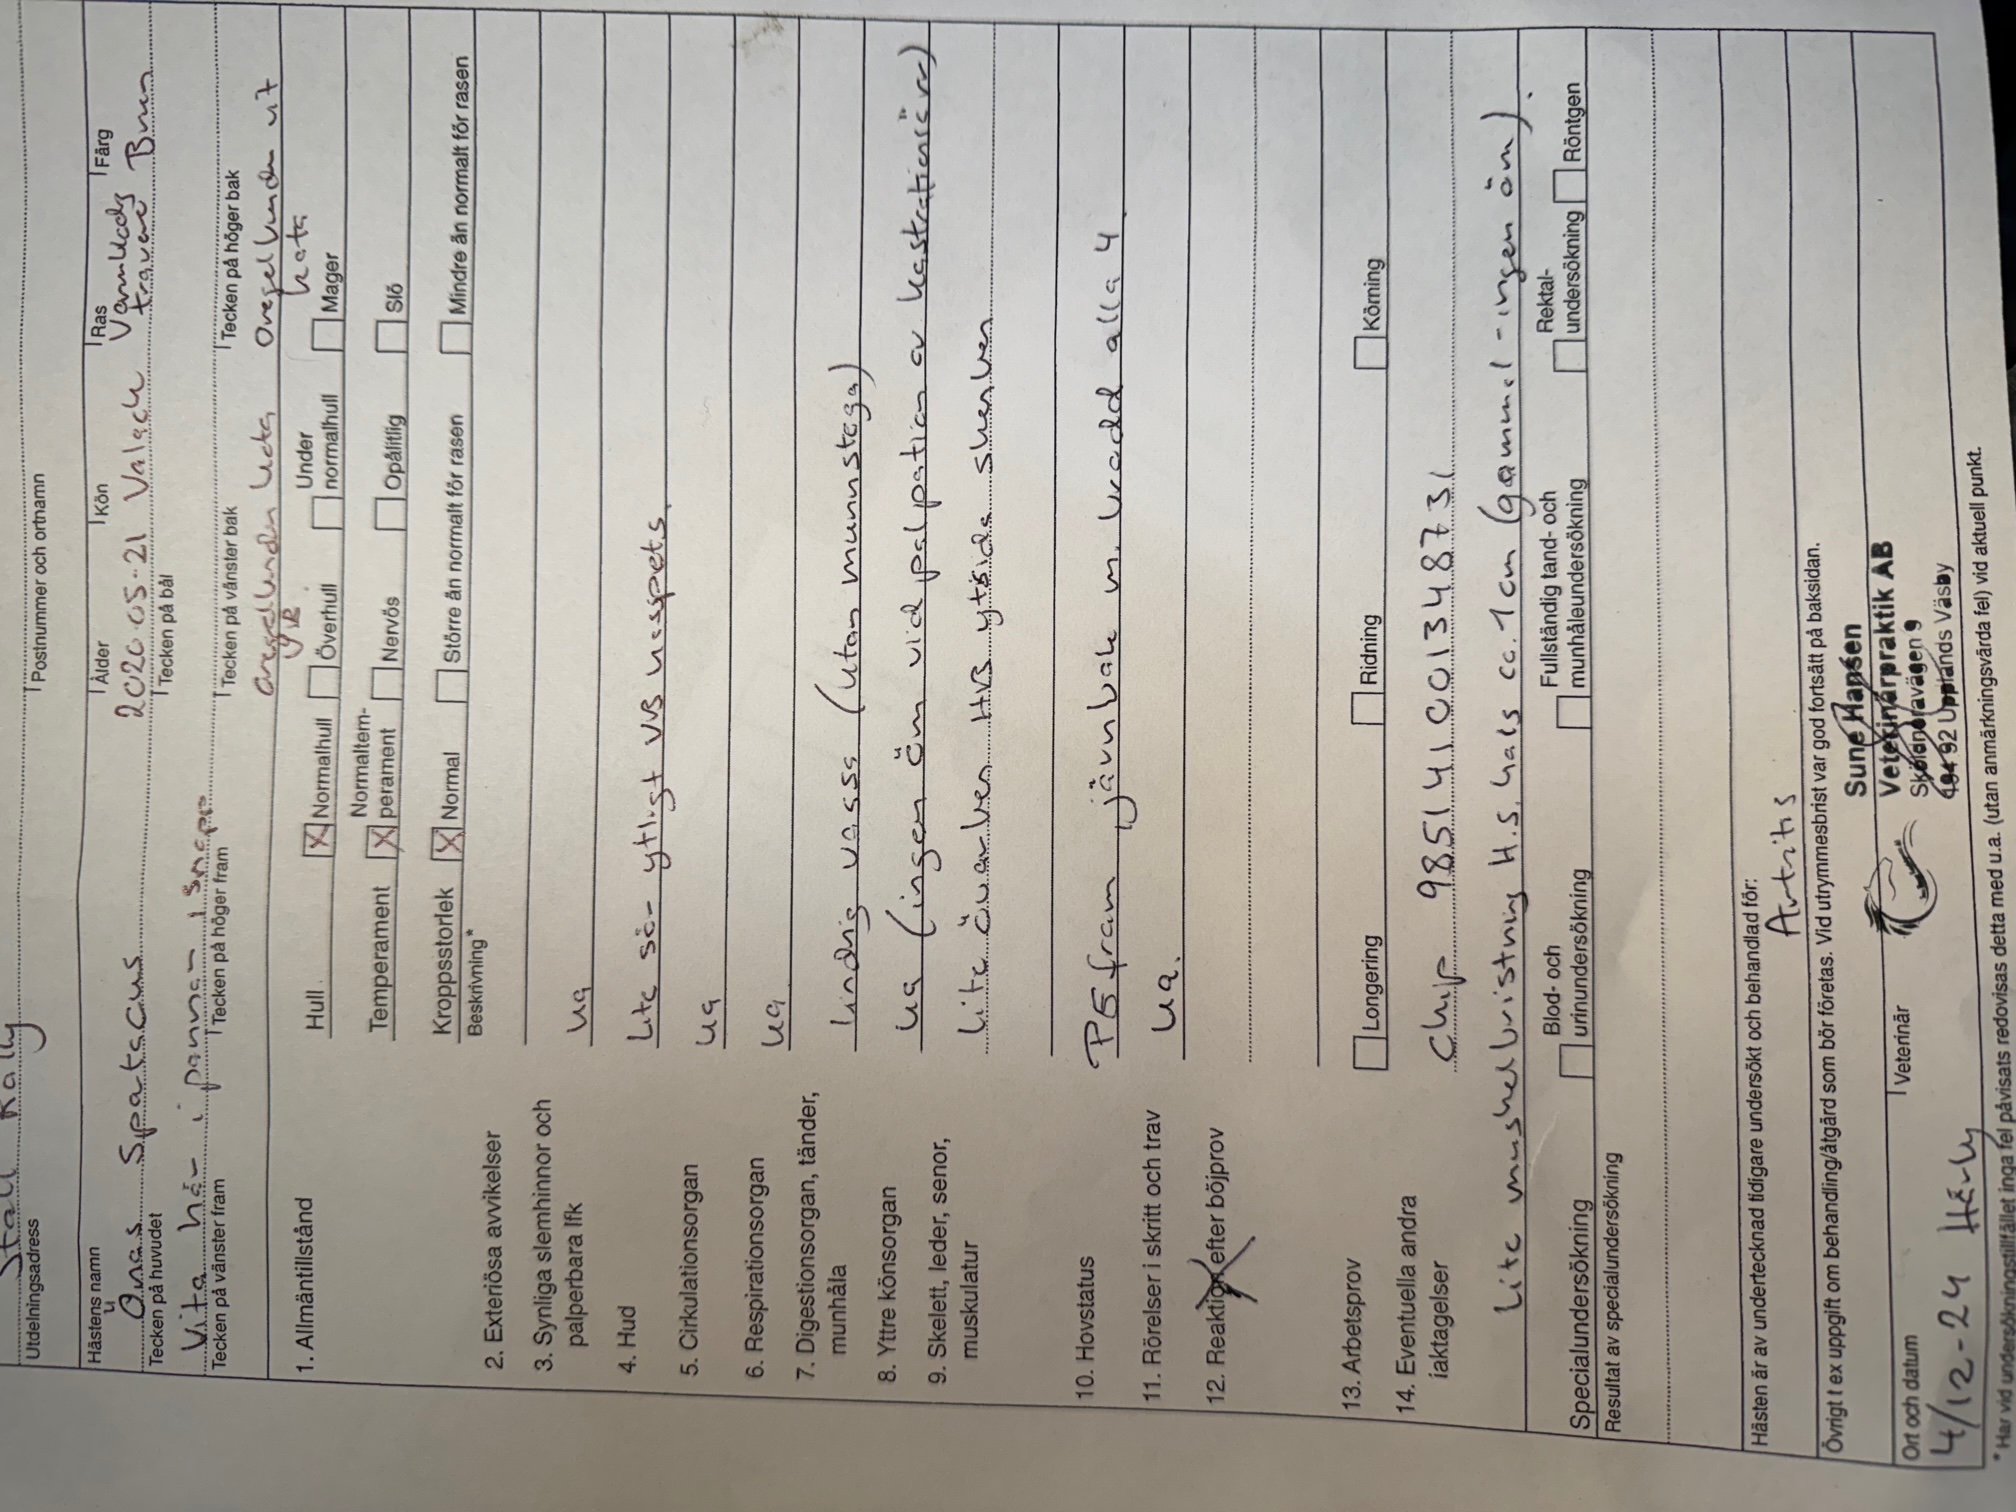 Stall Rally
Utdelningsadress
Postnummer och ortnamn
Hästens namn
Ålder
Kön
Ras
Färg
Önas Spatacus
2020-05-21
Valack
Varmblods
travare
Brun
Tecken på huvudet
Tecken på bål
Vita hår i pannan
Tecken på vänster fram
Tecken på höger fram
Tecken på vänster bak
Tecken på höger bak
oregelbunden vita
oregelbunden vit
kota
1. Allmäntillstånd
Hull
X Normalhull
Överhull
Under
normalhull
Mager
Temperament
X Normaltem-
perament
Nervös
Opålitlig
Slö
Kroppsstorlek
X Normal
Större än normalt för rasen
Mindre än normalt för rasen
Beskrivning*
2. Exteriösa avvikelser
3. Synliga slemhinnor och
palperbara lfk
ua
4. Hud
Lite sår ytligt VB haspets.
5. Cirkulationsorgan
ua
6. Respirationsorgan
ua
7. Digestionsorgan, tänder,
munhåla
lindrig vassa (utan munnstega)
8. Yttre könsorgan
ua (ingen öm vid palpation av kastrationsärr)
9. Skelett, leder, senor,
muskulatur
lite överben HVB ytsida skenben
10. Hovstatus
P5 fram järnbak m. brodd alla 4
11. Rörelser i skritt och trav
ua.
12. Reaktion efter böjprov
13. Arbetsprov
Longering
Ridning
Körning
14. Eventuella andra
iaktagelser
Chip 985141001348731
Lite muskelbristning H.S. hals ca. 1cm (gammal - ingen öm).
Specialundersökning
Blod- och
urinundersökning
Fullständig tand- och
munhåleundersökning
Rektal-
undersökning
Röntgen
Resultat av specialundersökning
Hästen är av undertecknad tidigare undersökt och behandlad för:
Artritis
Övrigt t ex uppgift om behandling/åtgärd som bör företas. Vid utrymmesbrist var god fortsätt på baksidan.
Ort och datum
Veterinär
4/12-24
Sune Hansen
Veterinärpraktik AB
Skölsneravägen 9
194 92 Upplands Väsby
*Har vid undersökningstillfället inga fel påvisats redovisas detta med u.a. (utan anmärkningsvärda fel) vid aktuell punkt.